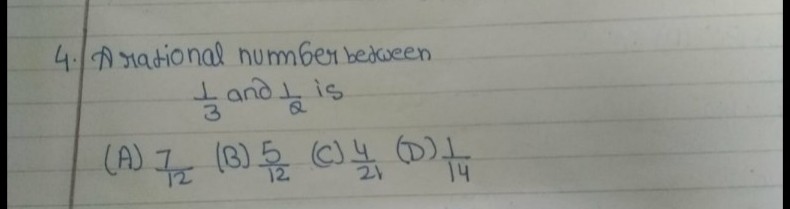 4. A rational number between
1/3 and 1/2 is
(A) 7/12 (B) 5/12 (C) 4/21 (D) 1/14